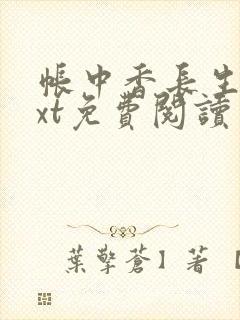 帳中香長生
xt免費閱讀
葉擎蒼】著【